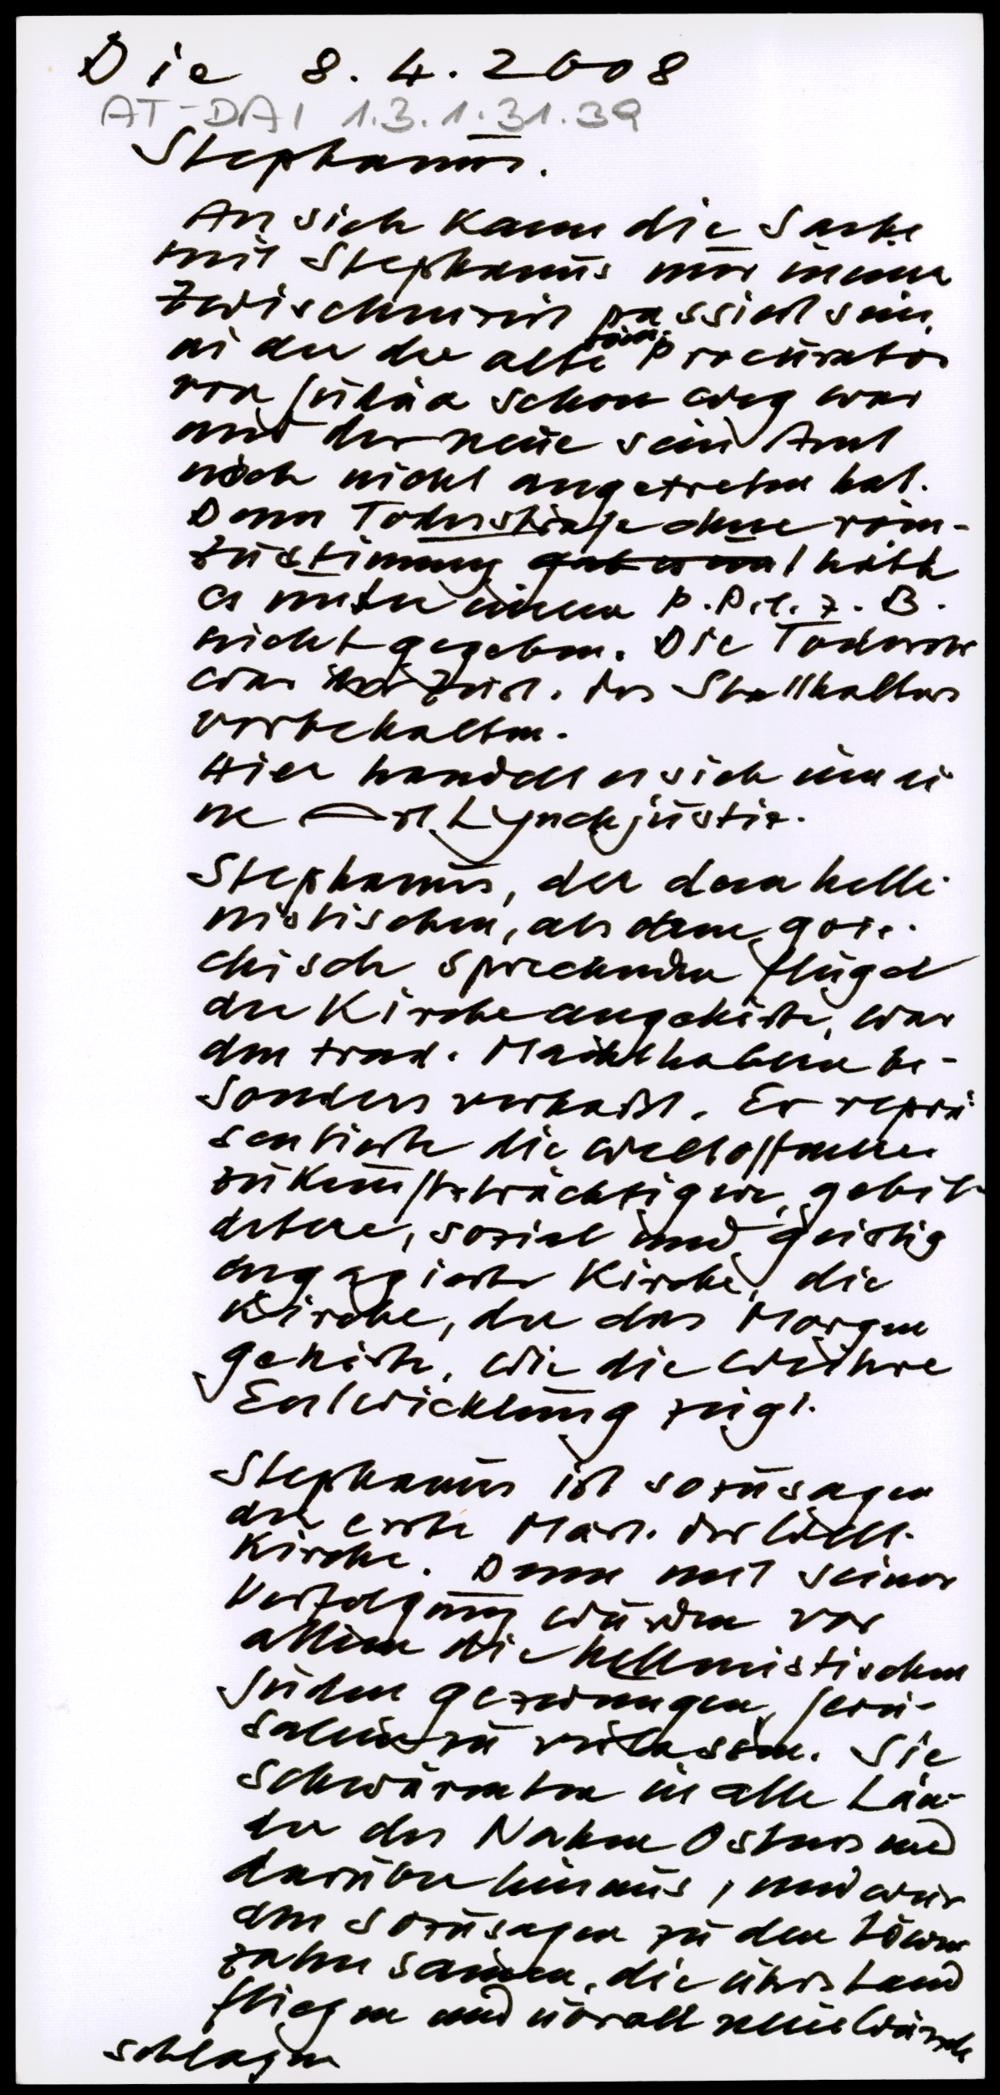 Die 8.4.2008
AT-DAI 1.3.1.31.39
Stephanus.
An sich kann die Sache
mit Stephanus nur in einer
Zwischenzeit passiert sein,
in der der alte röm. Procurator
von Judäa schon weg war
und der neue sein Amt
noch nicht angetreten hat.
Denn Todesstrafe ohne röm.
Zustimmung hätte
es unter einem P. Pil. z. B.
nicht gegeben. Die Todesstr
war der Zust. des Statthalters
vorbehalten.
Hier handelt es sich um ei
ne Art Lynchjustiz.
Stephanus, der dem helle
nistischen, also dem grie-
chisch sprechenden Flügel
der Kirche angehörte, war
den trad. Machthabern be-
sonders verhaßt. Er reprä
sentierte die weltoffenere
zukunftsträchtigere, gebil-
detere, sozial und geistig
engagierte Kirche, die
Kirche, der das Morgen
gehörte, wie die weitere
Entwicklung zeigt.
Stephanus ist sozusagen
der erste Märt. der
Kirche. Denn mit seiner
Verfolgung wurden vor
allem die hellenistischen
Juden gezwungen, Jeru-
salem zu verlassen. Sie
schwärmten in alle Län-
der des Nahen Ostens und
darüber hinaus, und wur
den sozusagen zu den Löwen
zahnsamen, die übers Land
fliegen und überall neue Würzel
schlagen